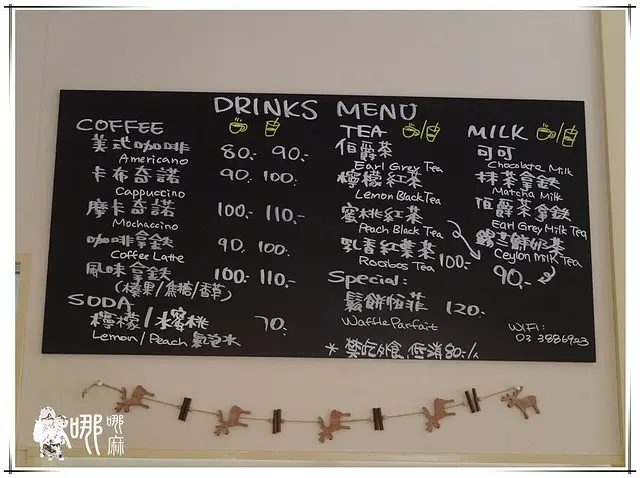 DRINKS MENU
COFFEE
美式咖啡 80.- 90.-
Americano
卡布奇諾 90. 100.
Cappuccino
摩卡奇諾 100.- 110.-
Mochaccino
咖啡拿鉄 90. 100.
Coffee Latte
風味拿鉄 100.- 110.-
(榛果/焦糖/香草)
SODA
檸檬/水蜜桃 70.-
Lemon/Peach 氣泡水
TEA
伯爵茶
Earl Grey Tea
檸檬紅茶
Lemon Black Tea
蜜桃紅茶
Peach Black Tea
Rooibos Tea 100.-
Special:
鬆餅 120.-
Waffle Parfait
* 禁吃外食, 低消80.-/人
MILK
可可
Chocolate Milk
抹茶拿鉄
Matcha Milk
伯爵茶拿鉄
Earl Grey Milk Tea
錫蘭鮮奶茶
Ceylon Milk Tea
90.-
WIFI:
03 3886923
哪哪麻